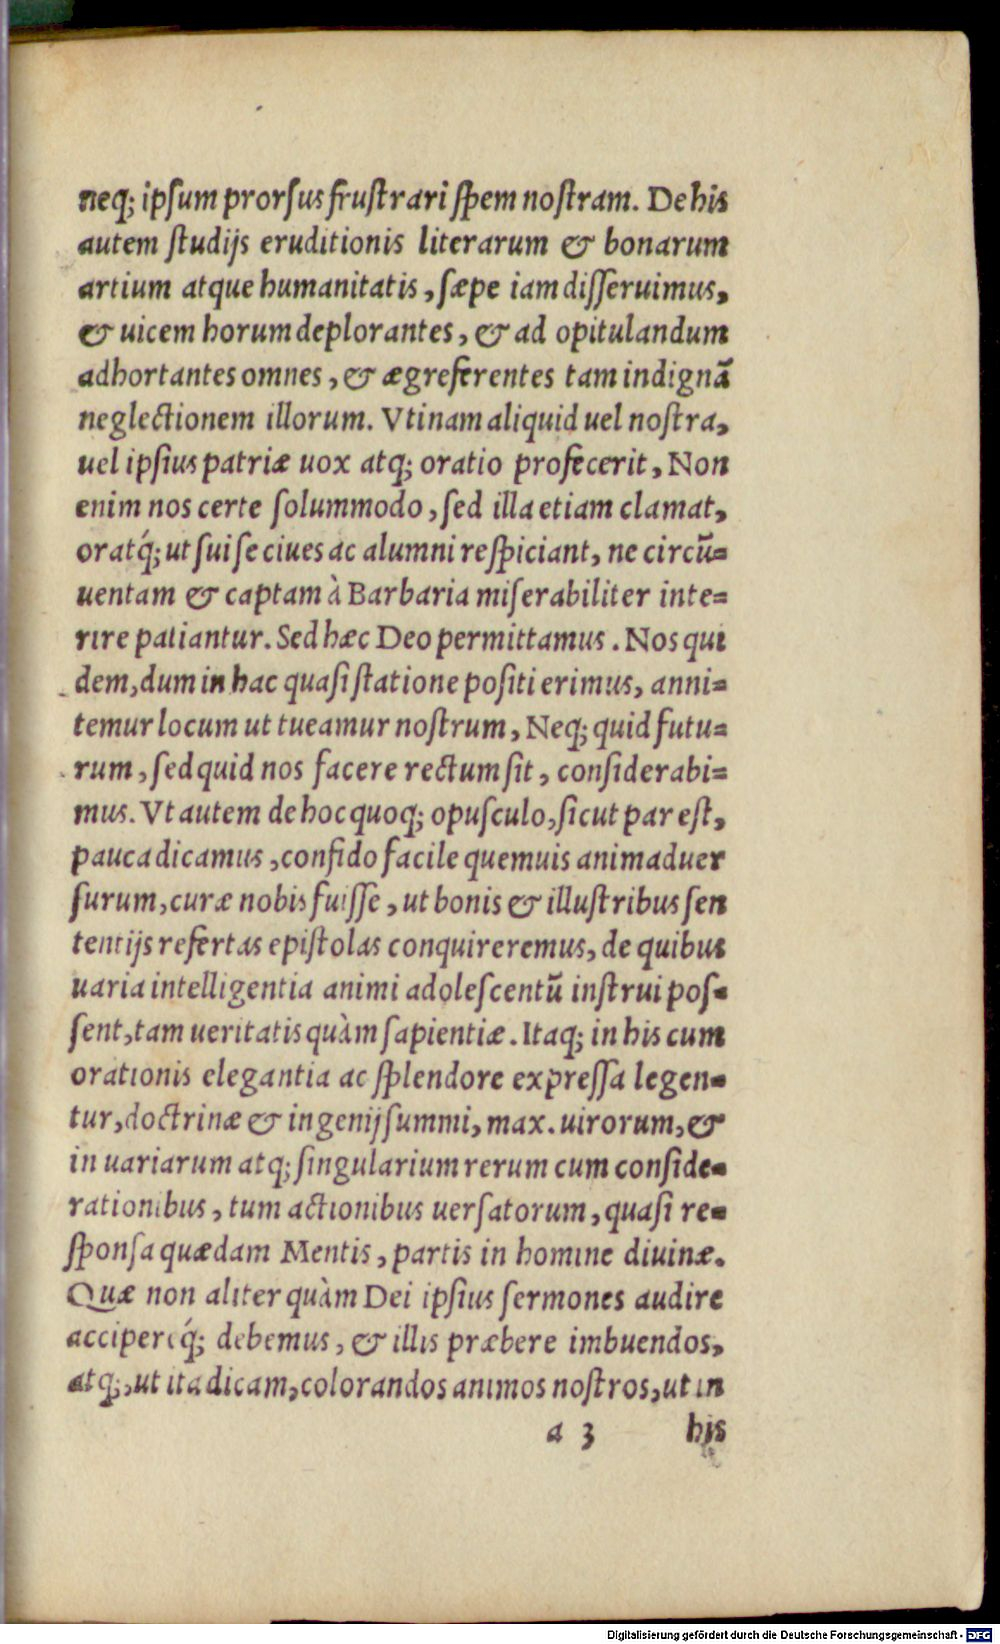 neq; ipsum prorsus frustrari spem nostram. De his
autem studijs eruditionis literarum & bonarum
artium atque humanitatis, sæpe iam disseruimus,
& uicem horum deplorantes, & ad opitulandum
adhortantes omnes, & ægre ferentes tam indignā
neglectionem illorum. Vtinam aliquid uel nostra,
uel ipsius patriæ uox atq; oratio profecerit, Non
enim nos certe solummodo, sed illa etiam clamat,
oratq́; ut sui se ciues ac alumni respiciant, ne circū=
uentam & captam à Barbaria miserabiliter inte=
rire patiantur. Sed hæc Deo permittamus. Nos qui
dem, dum in hac quasi statione positi erimus, anni=
temur locum ut tueamur nostrum, Neq; quid futu=
rum, sed quid nos facere rectum sit, considerabi=
mus. Vt autem de hoc quoq; opusculo, sicut par est,
pauca dicamus, confido facile quemuis animaduer
surum, curæ nobis fuisse, ut bonis & illustribus sen
tentijs refertas epistolas conquireremus, de quibus
uaria intelligentia animi adolescentū instrui pos=
sent, tam ueritatis quàm sapientiæ. Itaq; in his cum
orationis elegantia ac splendore expressa legen=
tur, doctrinæ & ingenij summi, max. uirorum, &
in uariarum atq; singularium rerum cum conside=
rationibus, tum actionibus uersatorum, quasi re=
sponsa quædam Mentis, partis in homine diuinæ.
Quæ non aliter quàm Dei ipsius sermones audire
accipereq́; debemus, & illis præbere imbuendos,
atq;, ut ita dicam, colorandos animos nostros, ut in
a 3 his
Digitalisierung gefördert durch die Deutsche Forschungsgemeinschaft - DFG